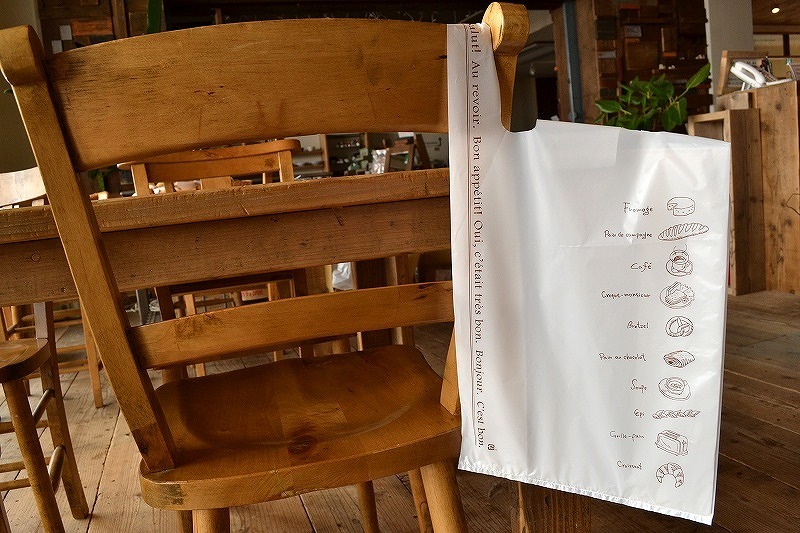 Au revoir. Bon appétit! Oui, c'était très bon. Bonjour. C'est bon.
Fromage
Pain de campagne
Café
Croque-monsieur
Bretzel
Pain au chocolat
Soupe
Epi
Grille-pain
Croissant